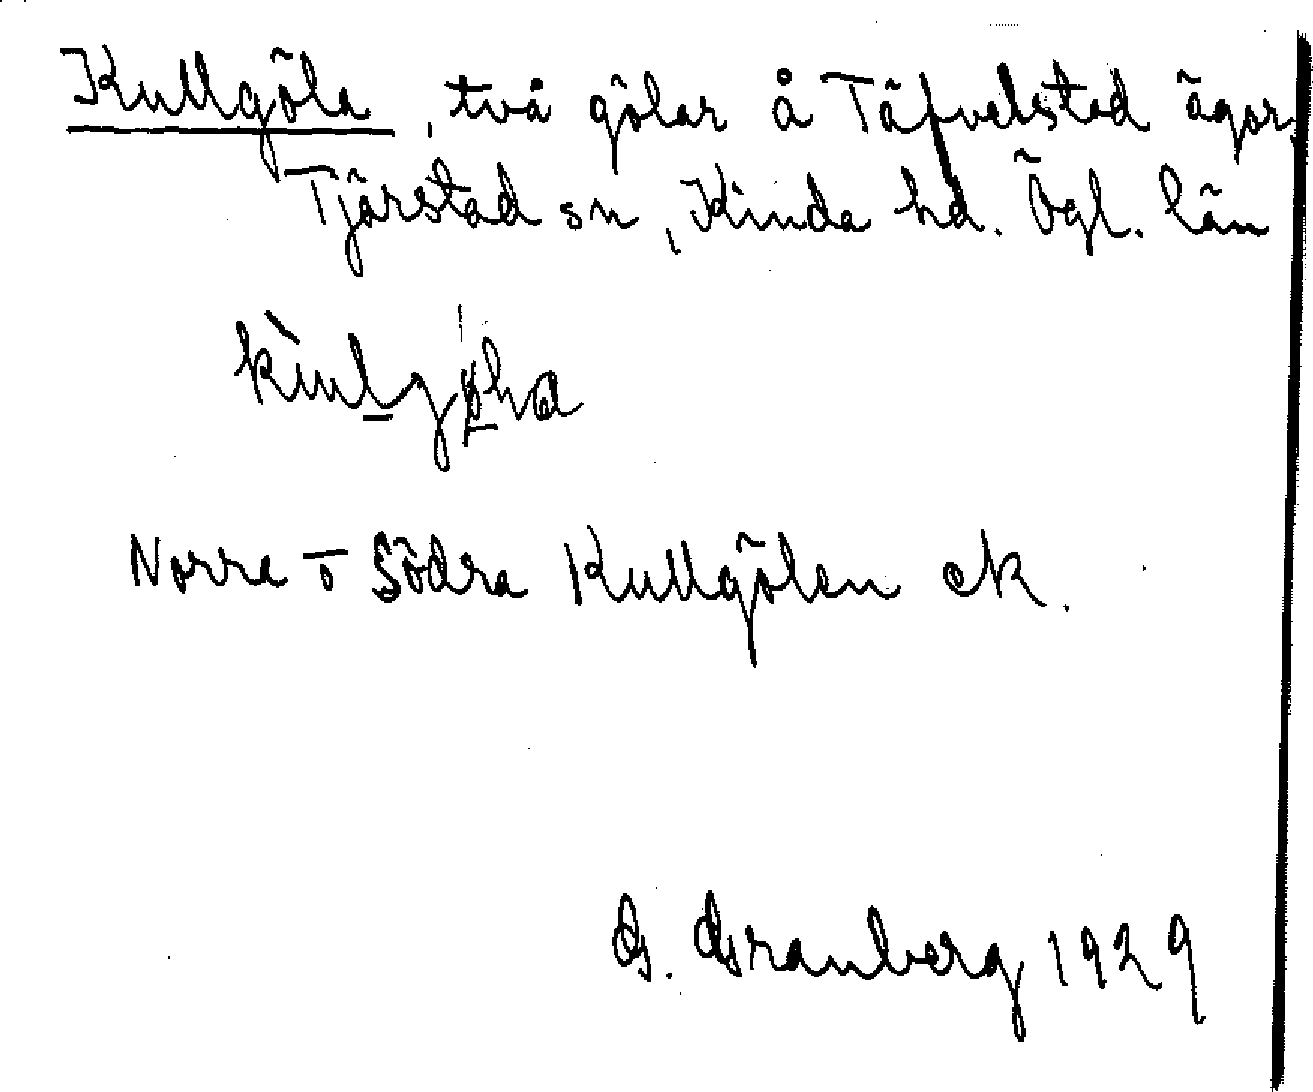 Kullgöla, två gölar å Täfvelstad ägor,
Tjärstad sn, Kinda hd. Ögl. län
Norra o Södra Kullgölen ek.
G. Granberg 1929